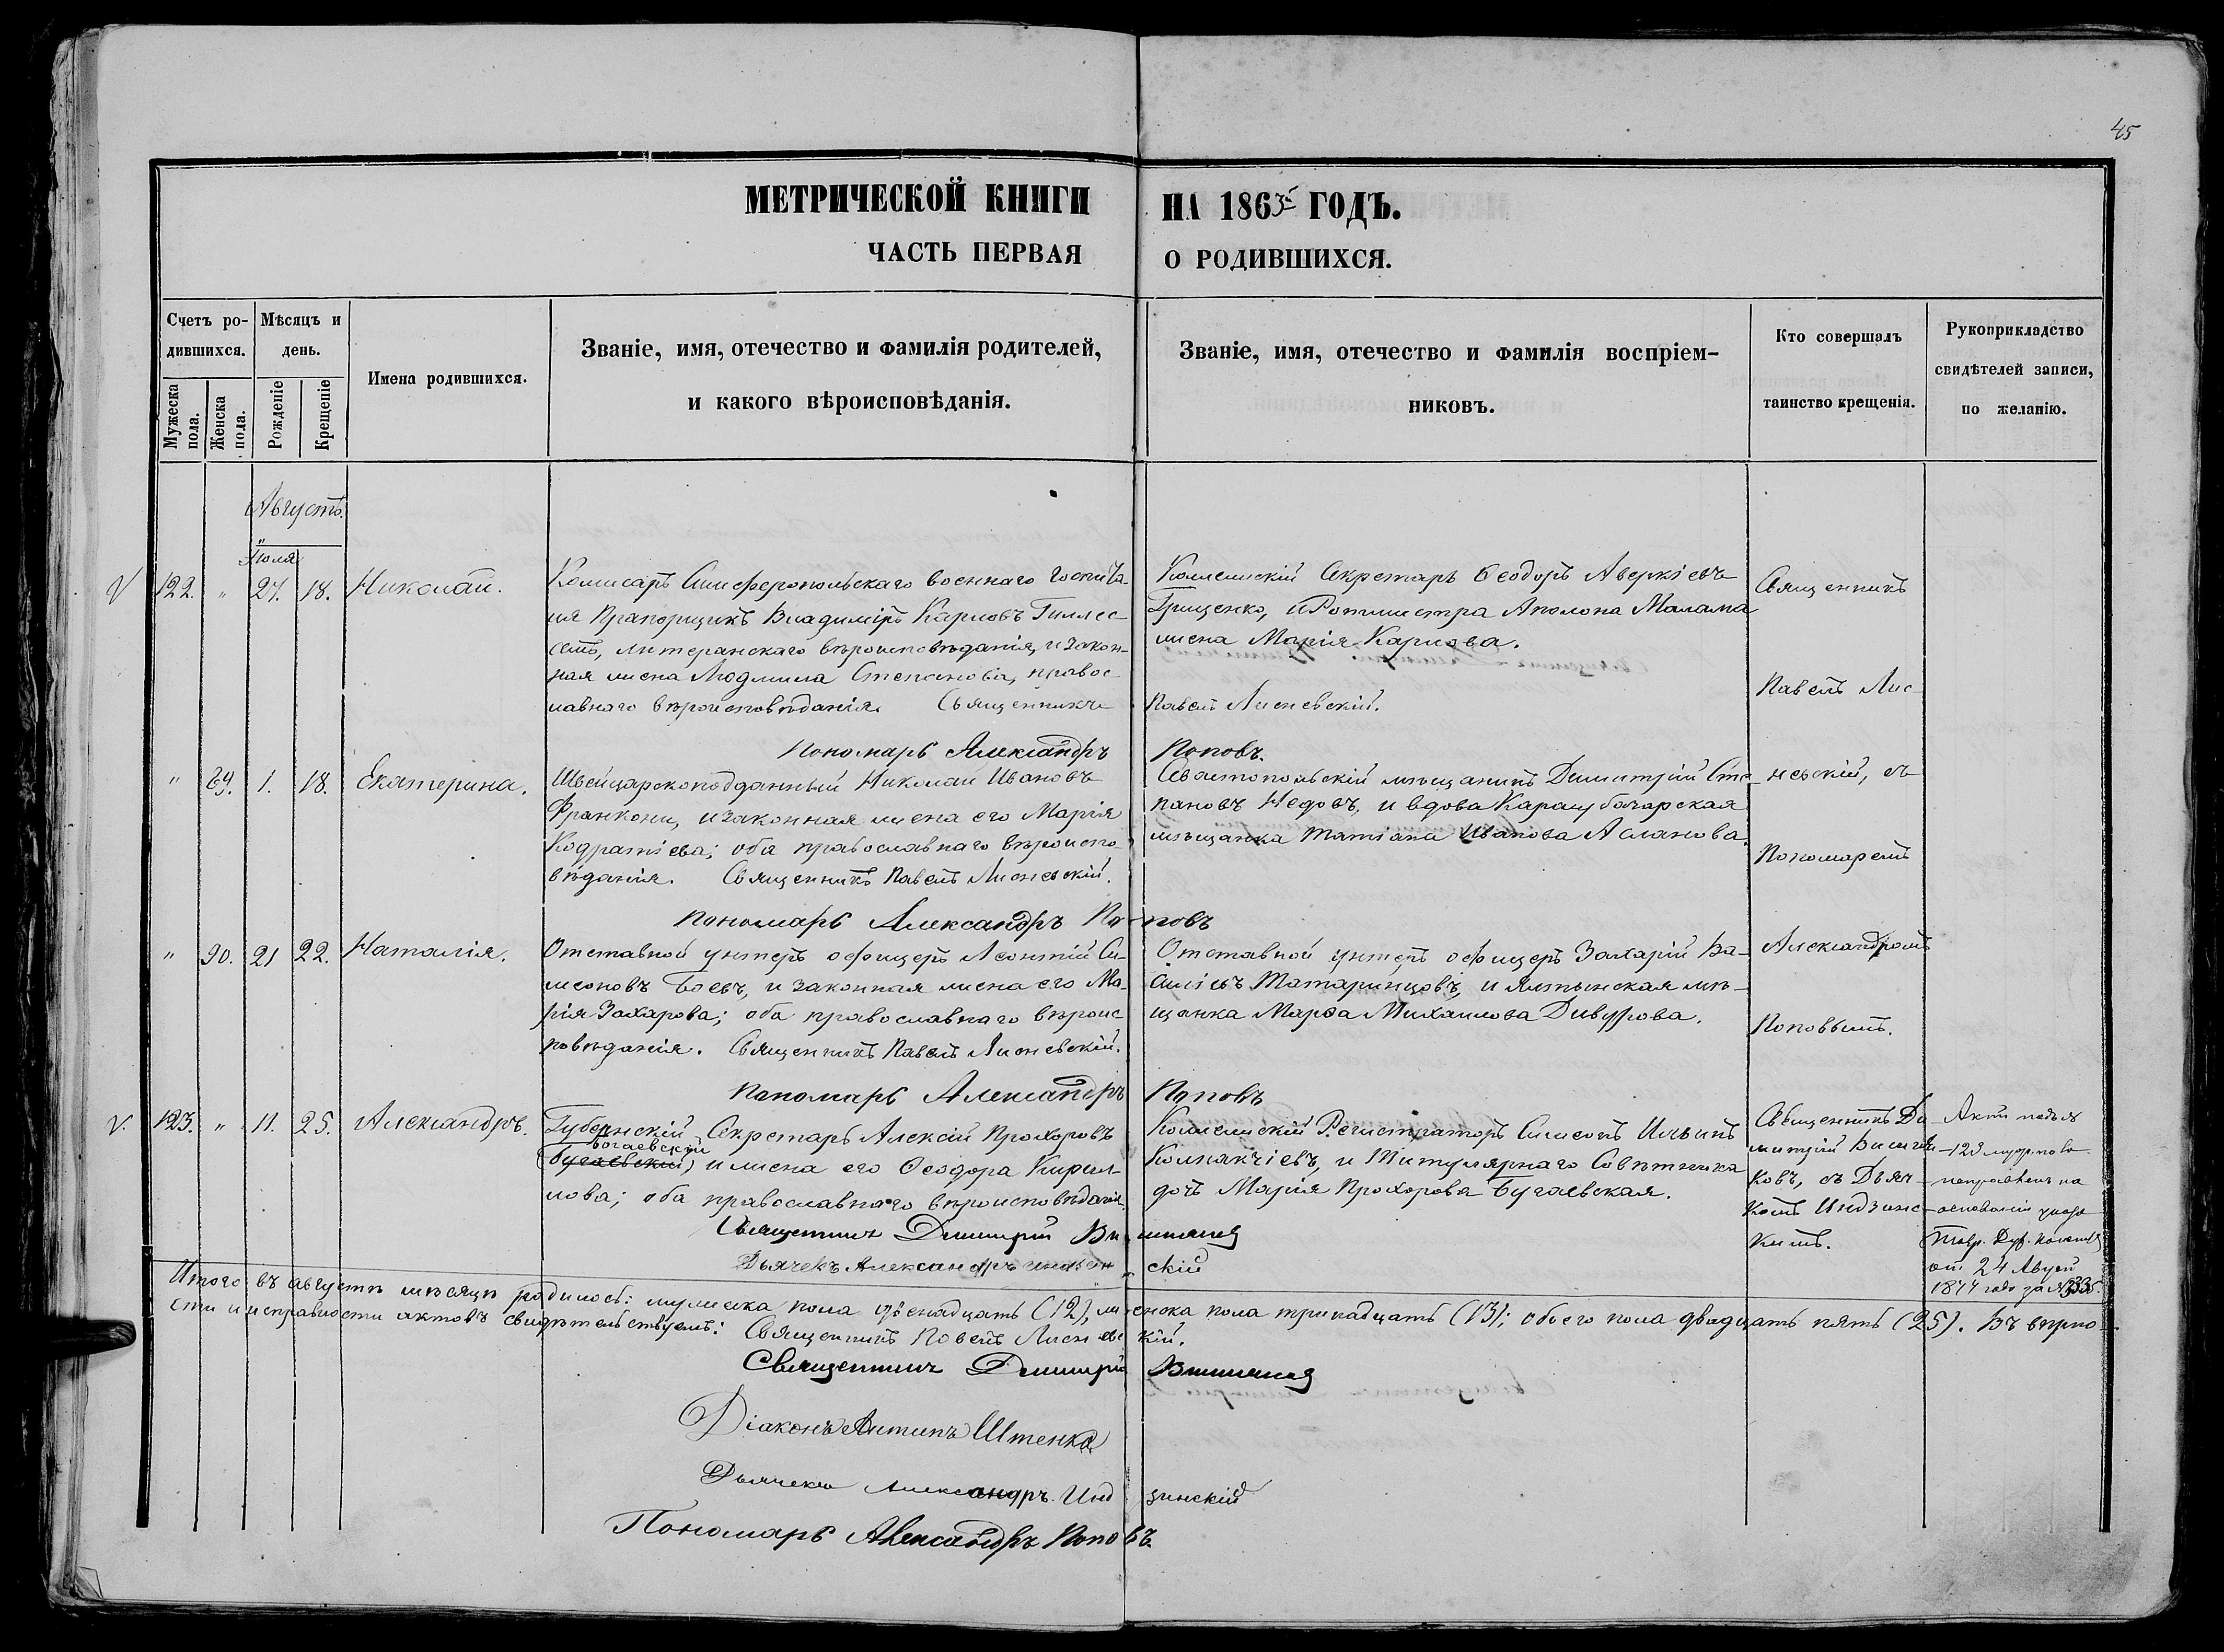 45
МЕТРИЧЕСКОЙ КНИГИ НА 1863й ГОДЪ.
ЧАСТЬ ПЕРВАЯ О РОДИВШИХСЯ.
Счетъ ро-
дившихся.
Мужеска пола.
Женска пола.
Мѣсяцъ и
день.
Рожденіе
Крещеніе
Имена родившихся.
Званіе, имя, отечество и фамилія родителей,
и какого вѣроисповѣданія.
Званіе, имя, отечество и фамилія воспріем-
никовъ.
Кто совершалъ
таинство крещенія.
Рукоприкладство
свидѣтелей записи,
по желанію.
Августъ.
Іюля
V 122. " 27. 18. Николай.
Комисаръ Симферопольскаго военнаго госпита-
ля Прапорщикъ Владиміръ Карловъ Гиллес-
семъ, лютеранскаго вѣроисповѣданія, и закон-
ная жена Людмила Степанова, правос-
лавнаго вѣроисповѣданія. Священникъ
Пономарь Александръ
Колежскій Секретарь Ѳеодоръ Аверкіевъ
Грищенко, и Ротмистра Аполона Малама
жена Марія Карлова.
Павелъ Лисневскій.
Поповъ.
Священникъ
Павелъ Лис-
" 89. 1. 18. Екатерина.
Швейцарскоподданный Николай Ивановъ
Франкони, и законная жена его Марія
Кодратіева; оба православнаго вѣроиспо-
вѣданія. Священникъ Павелъ Лисневскій.
Пономарь Александръ По-повъ
Севастопольскій мѣщанинъ Димитрій Сте-
пановъ Недовъ, и вдова Карасубазарская
мѣщанка Татіана Иванова Асланова.
невскій, съ
Пономаремъ
" 90. 21 22. Наталія.
Отставной унтеръ офицеръ Леонтій Си-
меоновъ Боевъ, и законная жена его Ма-
рія Захарова; оба православнаго вѣроис-
повѣданія. Священникъ Павелъ Лисневскій.
Пономарь Александръ Поповъ
Отставной унтеръ офицеръ Захарій Ва-
силіевъ Татаринцовъ, и Ялтынская мѣ-
щанка Марѳа Михаилова
Александромъ
Поповымъ.
V. 123. " 11. 25. Александръ.
Губернскій Секретарь Алексій Прохоровъ
Богаевскій
(Бугаевскій) и жена его Ѳеодора Кирил-
лова; оба православнаго вѣроисповѣданія.
Священникъ Димитрій
Дьячекъ Александръ Индзинскій
Колежскій Регистраторъ Симеонъ Ильинъ
Колпакчіевъ, и Титулярнаго Совѣтника
дочь Марія Прохорова Бугаевская.
Священникъ Ди-
митрій
ковъ, съ Дьяч-
комъ Индзинс-
кимъ.
Актъ подъ №
123 муж. пола
исправленъ на
основаніи указа
Тавр. Дух. Консист.
отъ 24
1877 года за №
Итого въ августѣ мѣсяцѣ родилось: мужеска пола двенадцать (12), женска пола тринадцать (13); обоего пола двадцать пять (25). Въ вѣрно-
сти и исправности актовъ свидѣтельствуемъ: Священникъ Павелъ Лисневскій.
Священникъ Димитрій
Діаконъ Антипъ Штенко
Дьячекъ Александръ Индзинскій
Пономарь Александръ Поповъ.